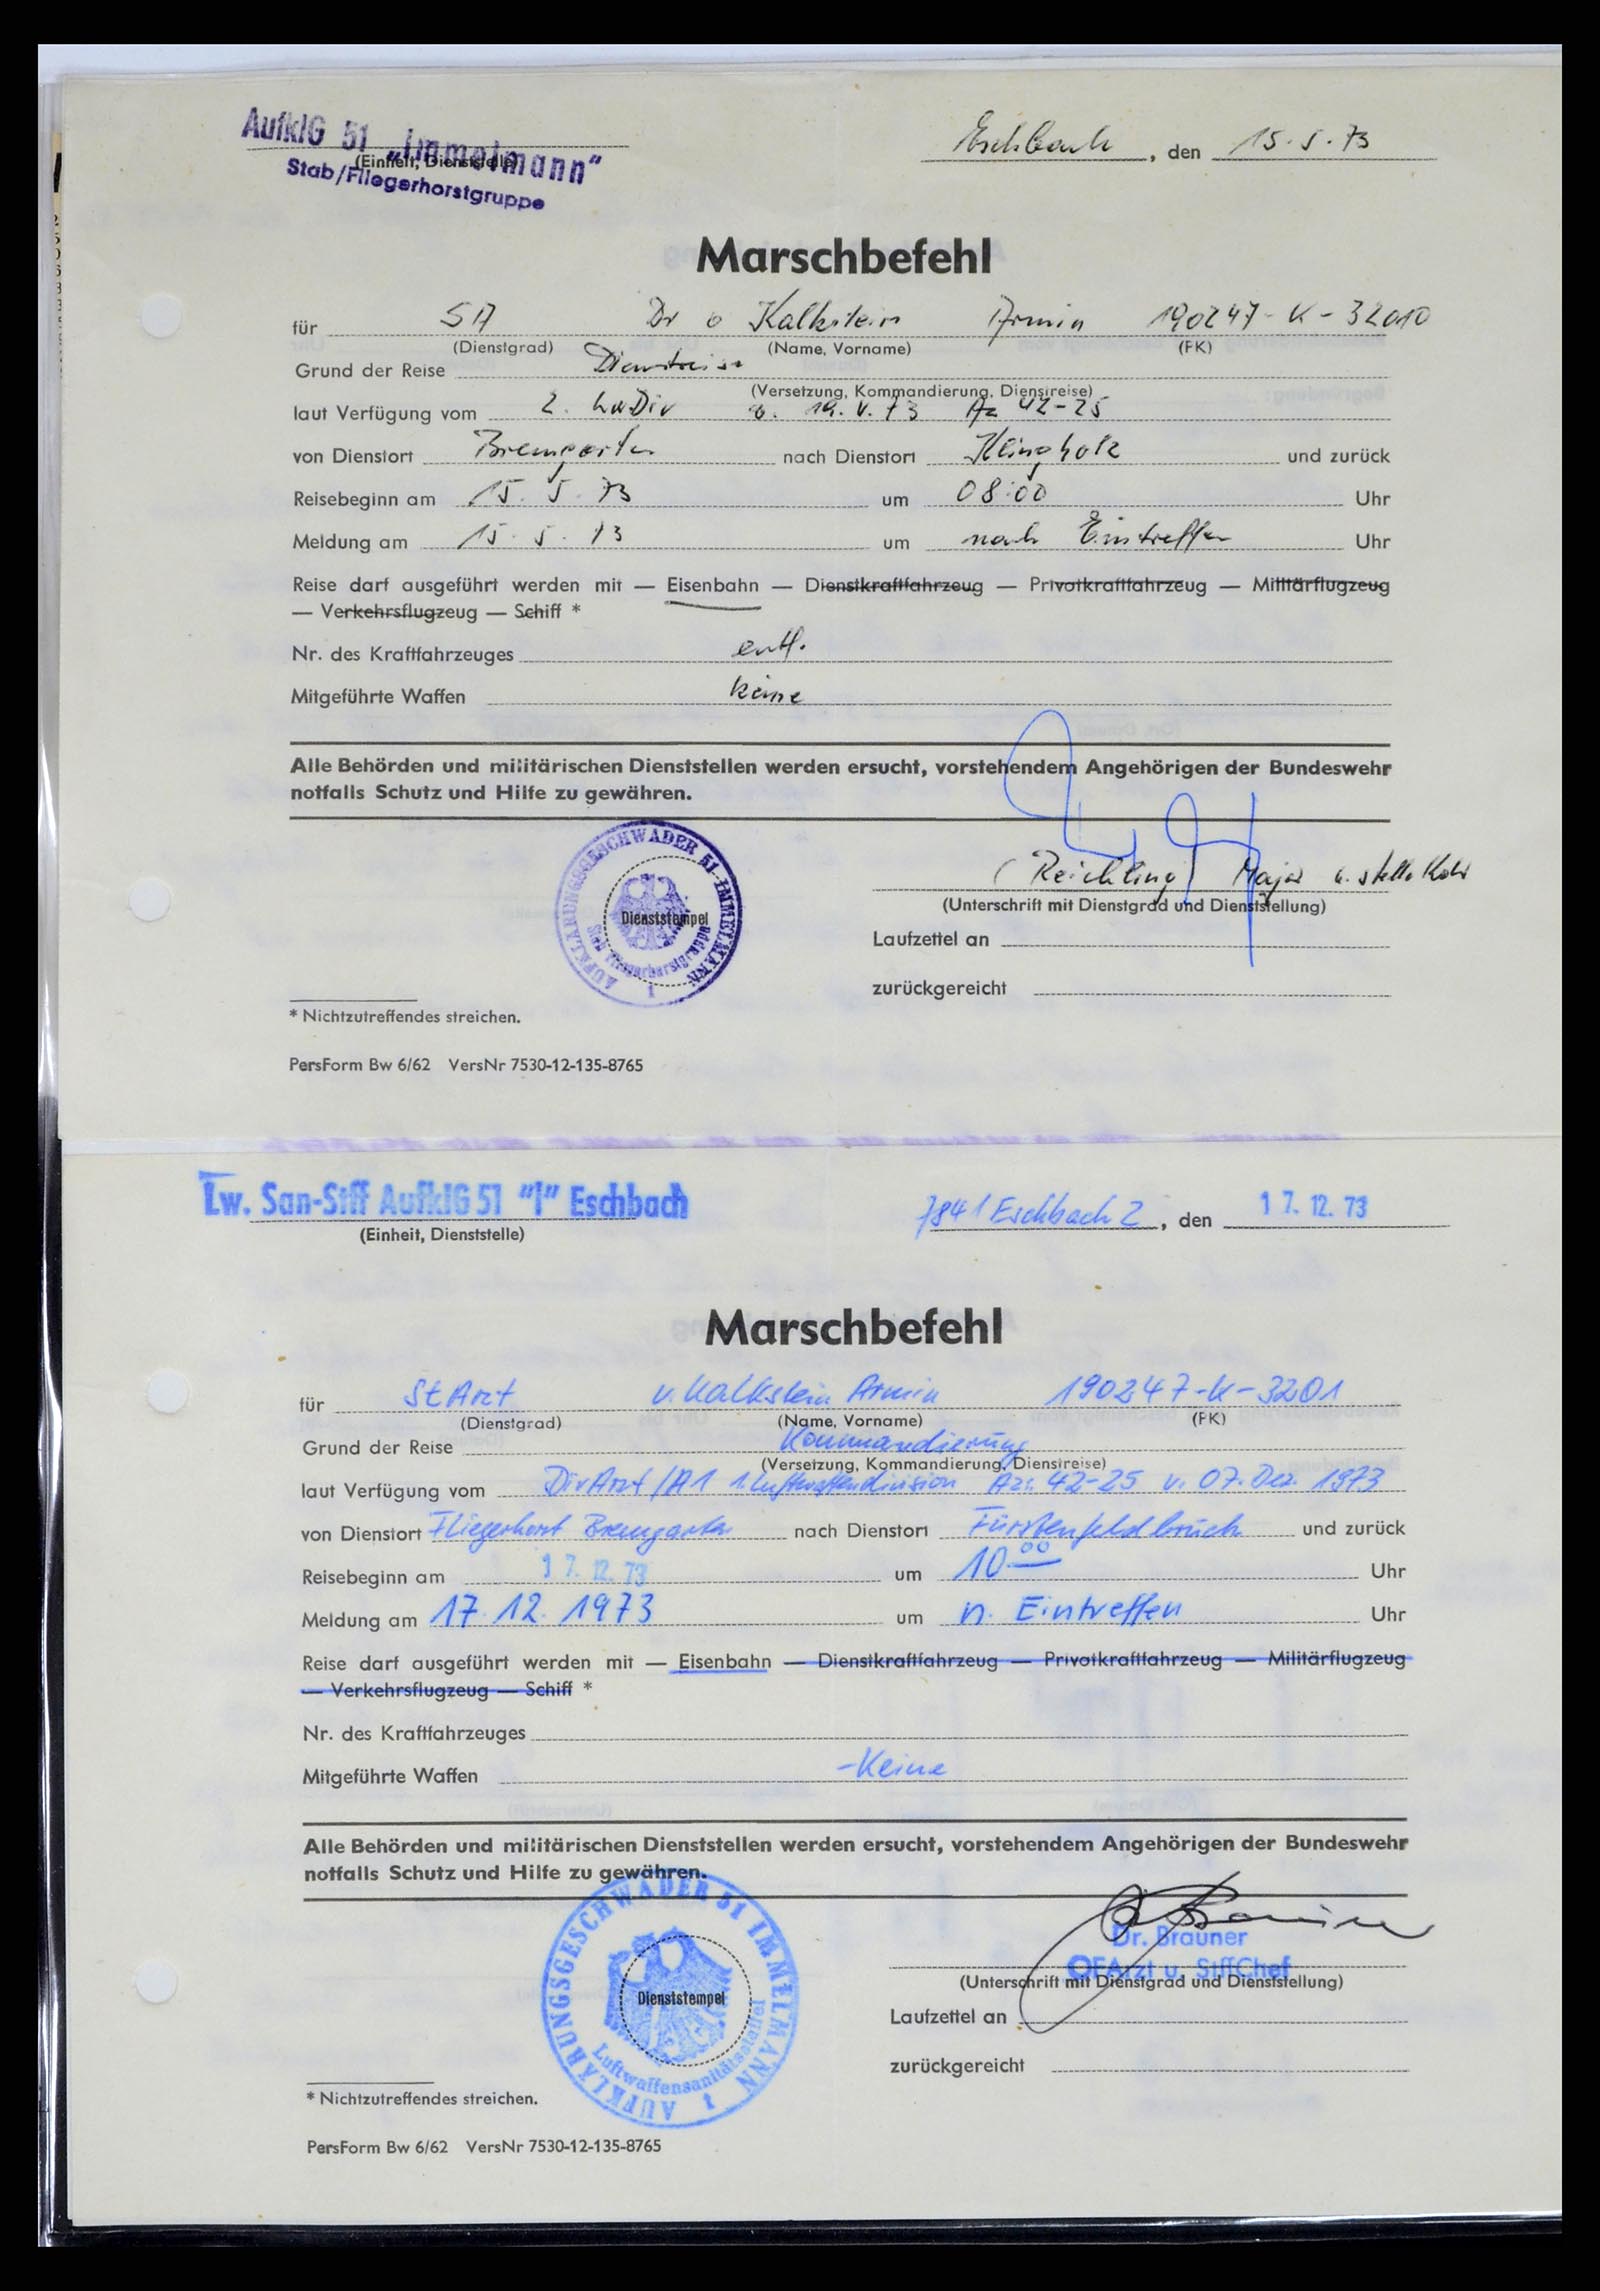 AufklG 51 „Immelmann“
(Einheit, Dienststelle)
Stab/Fliegerhorstgruppe
Eschbach, den 15.5.73
Marschbefehl
für SA Dr v Kalkstein Armin 190247-K-32010
(Dienstgrad) (Name, Vorname) (PK)
Grund der Reise Dienstreise
(Versetzung, Kommandierung, Dienstreise)
laut Verfügung vom 2. LwDiv v. 19.V.73 Az 42-25
von Dienstort Bremgarten nach Dienstort Klingholz und zurück
Reisebeginn am 15.5.73 um 08:00 Uhr
Meldung am 15.5.73 um nach Eintreffen Uhr
Reise darf ausgeführt werden mit — Eisenbahn — Dienstkraftfahrzeug — Privatkraftfahrzeug — Militärflugzeug
— Verkehrsflugzeug — Schiff *
Nr. des Kraftfahrzeuges entf.
Mitgeführte Waffen keine
Alle Behörden und militärischen Dienststellen werden ersucht, vorstehendem Angehörigen der Bundeswehr
notfalls Schutz und Hilfe zu gewähren.
AUFKLÄRUNGSGESCHWADER 51 IMMELMANN
Stab Fliegerhorstgruppe
1
Dienststempel
(Reichling) Major u. stellv
(Unterschrift mit Dienstgrad und Dienststellung)
Laufzettel an
zurückgereicht
* Nichtzutreffendes streichen.
PersForm Bw 6/62 VersNr 7530-12-135-8765
Lw. San-Stff AufklG 51 "I" Eschbach
(Einheit, Dienststelle)
7841 Eschbach 2, den 17.12.73
Marschbefehl
für StArzt v. Kalkstein Armin 190247-K-3201
(Dienstgrad) (Name, Vorname) (PK)
Grund der Reise Kommandierung
(Versetzung, Kommandierung, Dienstreise)
laut Verfügung vom DivArzt/A1 1. Luftwaffendivision Az: 42-25 v. 07. Dez. 1973
von Dienstort Fliegerhorst Bremgarten nach Dienstort Fürstenfeldbruck und zurück
Reisebeginn am 17.12.73 um 10.00 Uhr
Meldung am 17.12.1973 um n. Eintreffen Uhr
Reise darf ausgeführt werden mit — Eisenbahn — Dienstkraftfahrzeug — Privatkraftfahrzeug — Militärflugzeug
— Verkehrsflugzeug — Schiff *
Nr. des Kraftfahrzeuges
Mitgeführte Waffen -Keine
Alle Behörden und militärischen Dienststellen werden ersucht, vorstehendem Angehörigen der Bundeswehr
notfalls Schutz und Hilfe zu gewähren.
AUFKLÄRUNGSGESCHWADER 51 IMMELMANN
Luftwaffensanitätsstaffel
1
Dienststempel
Dr. Brauner
OFArzt u. StffChef
(Unterschrift mit Dienstgrad und Dienststellung)
Laufzettel an
zurückgereicht
* Nichtzutreffendes streichen.
PersForm Bw 6/62 VersNr 7530-12-135-8765